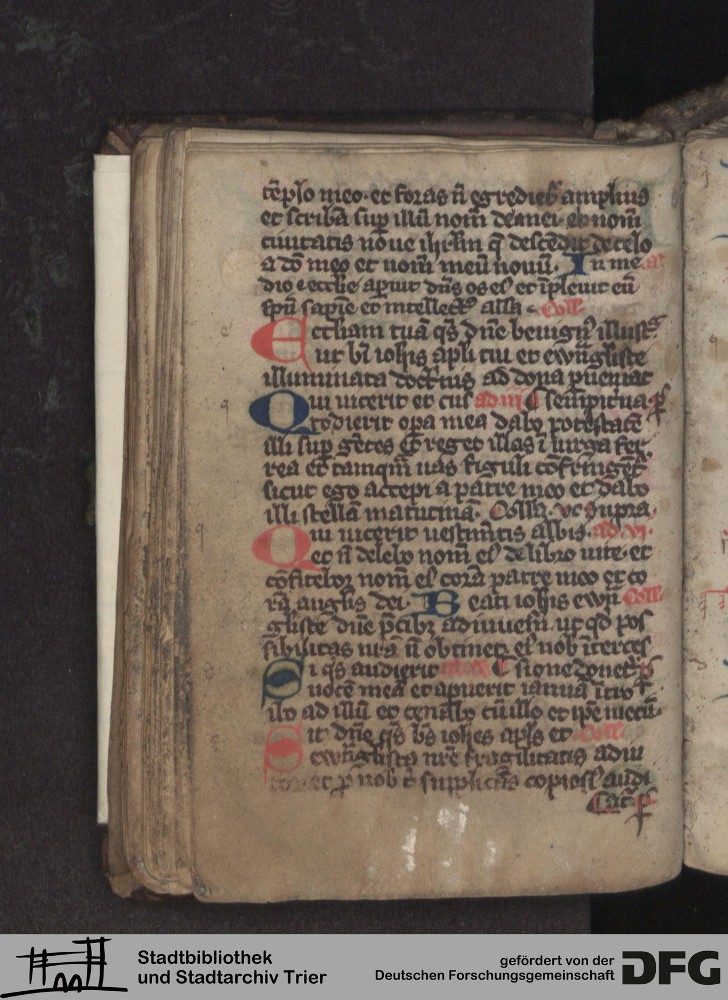 tēplo meo. et foras nō egrediet᷑ amplius
et scribā sup̱ illū nom̄ dei mei. et nom̄
ciuitatis noue ihrlm̄ q̄ descēdit de celo
a dō meo et nom̄ meū nouū. In me
dio eccl̄ie aperuit dn̄s os eꝰ et īpleuit eū
spū sapiē et intellectꝰ all̓a Coll̓.
Eccl̄iam tuā qs̄ dn̄e benignꝰ illustᷓ
ut bī ioh̄is apl̓i tui et ewāgl̓iste
illuminata doctᷓnis ad dona ꝑueniat
Qui uicerit et cus ad iii sempiterna ꝑ
todierit oꝑa mea dabo potestatē
illi sup̱ gētes Et reget illas ī uirga fer
rea et tamqm̄ uas figuli cōfringet᷑
sicut ego accepi a patre meo et dabo
illi stellam matutinā. Coll̓a ut supra.
Qui uicerit uestimt̄is albis. ad vi.
et nō delebo nom̄ eꝰ de libro uite. et
cōfitebor nom̄ eꝰ corā patre meo et co
rā angl̓is dei. Beati ioh̄is ewā Coll̓.
gl̓iste dn̄e p̄cibꝫ adiuuem̄ ut qd̄ pos
sibilitas nr̄a nō obtinet eꝰ nob̄ īterces
Si qs̄ audierit sione donet᷑ ꝑ
uocē meā et aperuerit ianuā ītro
ibo ad illū et cenabo cū illo et ip̄e mecū.
Sit dn̄e qs̄ bs̄ ioh̄es apl̓s et Coll̓.
ewāgl̓ista nr̄e fragilitatis adiu
tor et ꝓ nob̄ t̄ supplicās copiosꝰ audi
atᷓ ꝑ
Stadtbibliothek
und Stadtarchiv Trier
gefördert von der
Deutschen Forschungsgemeinschaft
DFG